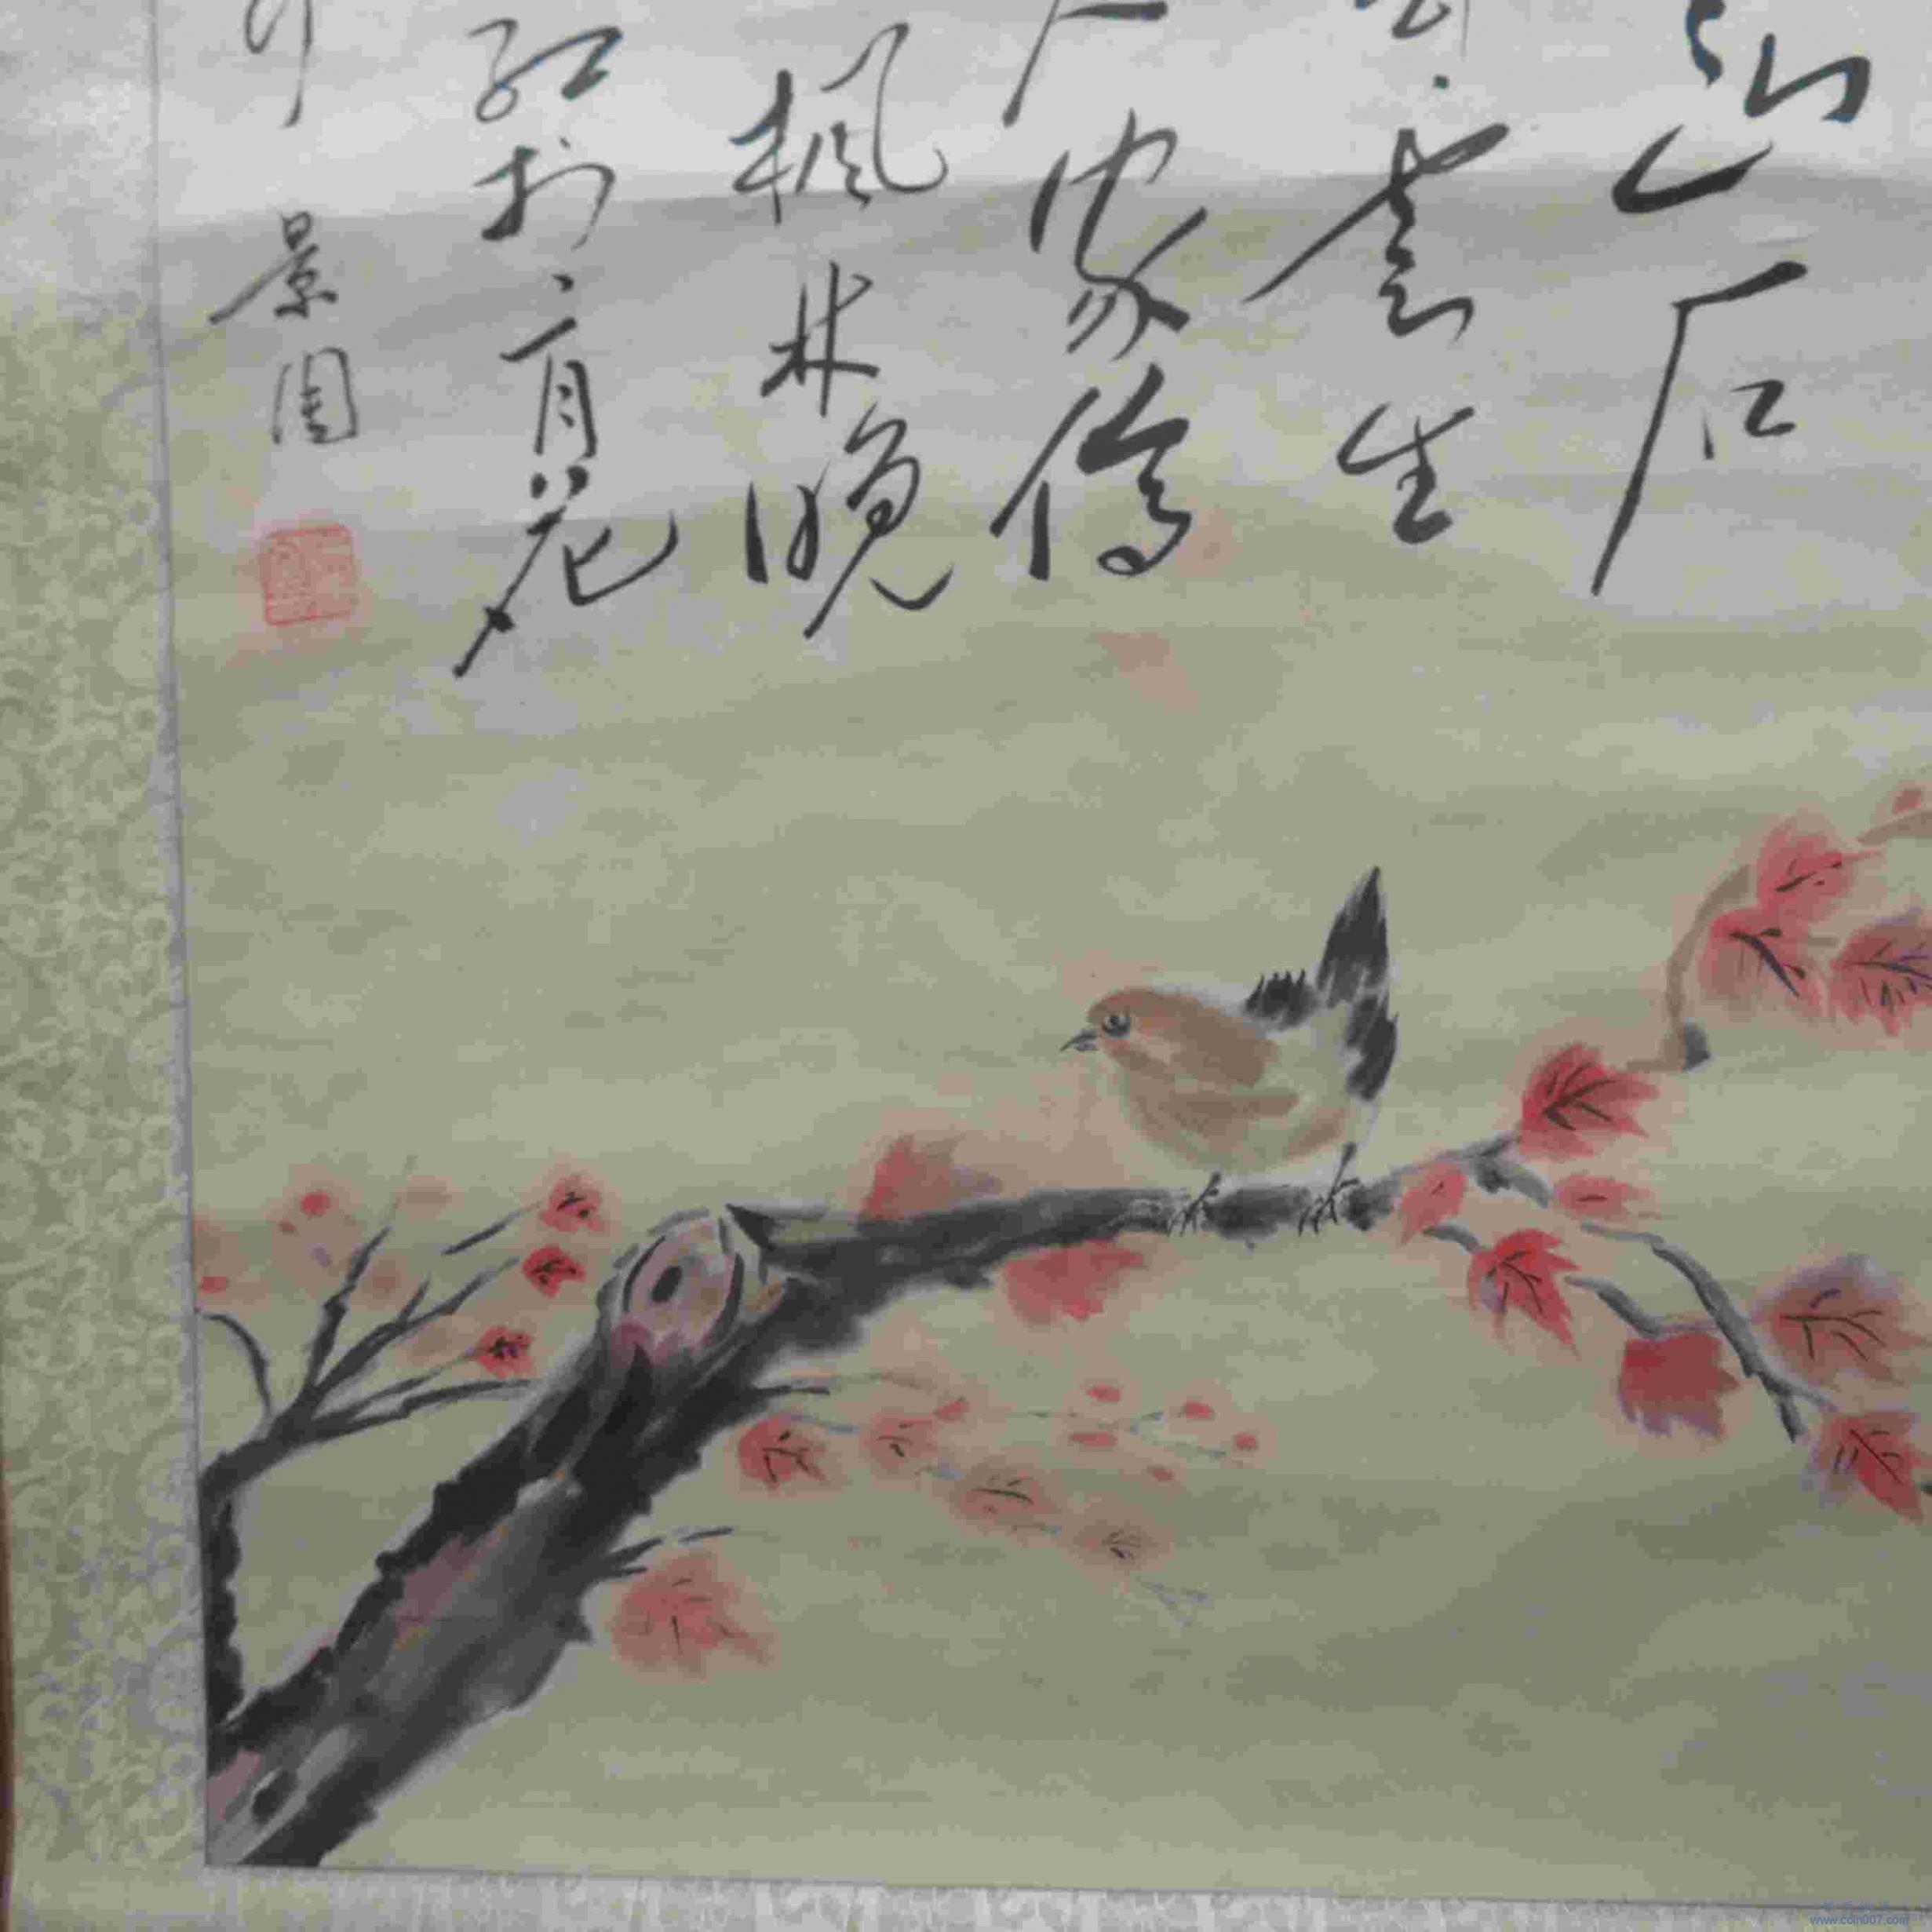 山石
云生
家停
枫林晚
红於二月花
景
www.coin007.com